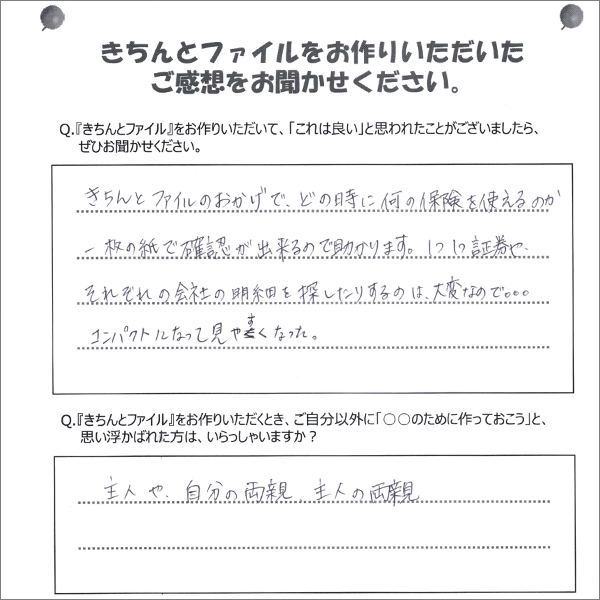 きちんとファイルをお作りいただいた
ご感想をお聞かせください。
Q.『きちんとファイル』をお作りいただいて、「これは良い」と思われたことがございましたら、
ぜひお聞かせください。
きちんとファイルのおかげで、どの時に何の保険を使えるのか
一枚の紙で確認が出来るので助かります。1つ1つ証券や、
それぞれの会社の明細を探したりするのは、大変なので。。。
コンパクトになって見やすくなった。
Q.『きちんとファイル』をお作りいただくとき、ご自分以外に「〇〇のために作っておこう」と、
思い浮かばれた方は、いらっしゃいますか？
主人や、自分の両親 主人の両親